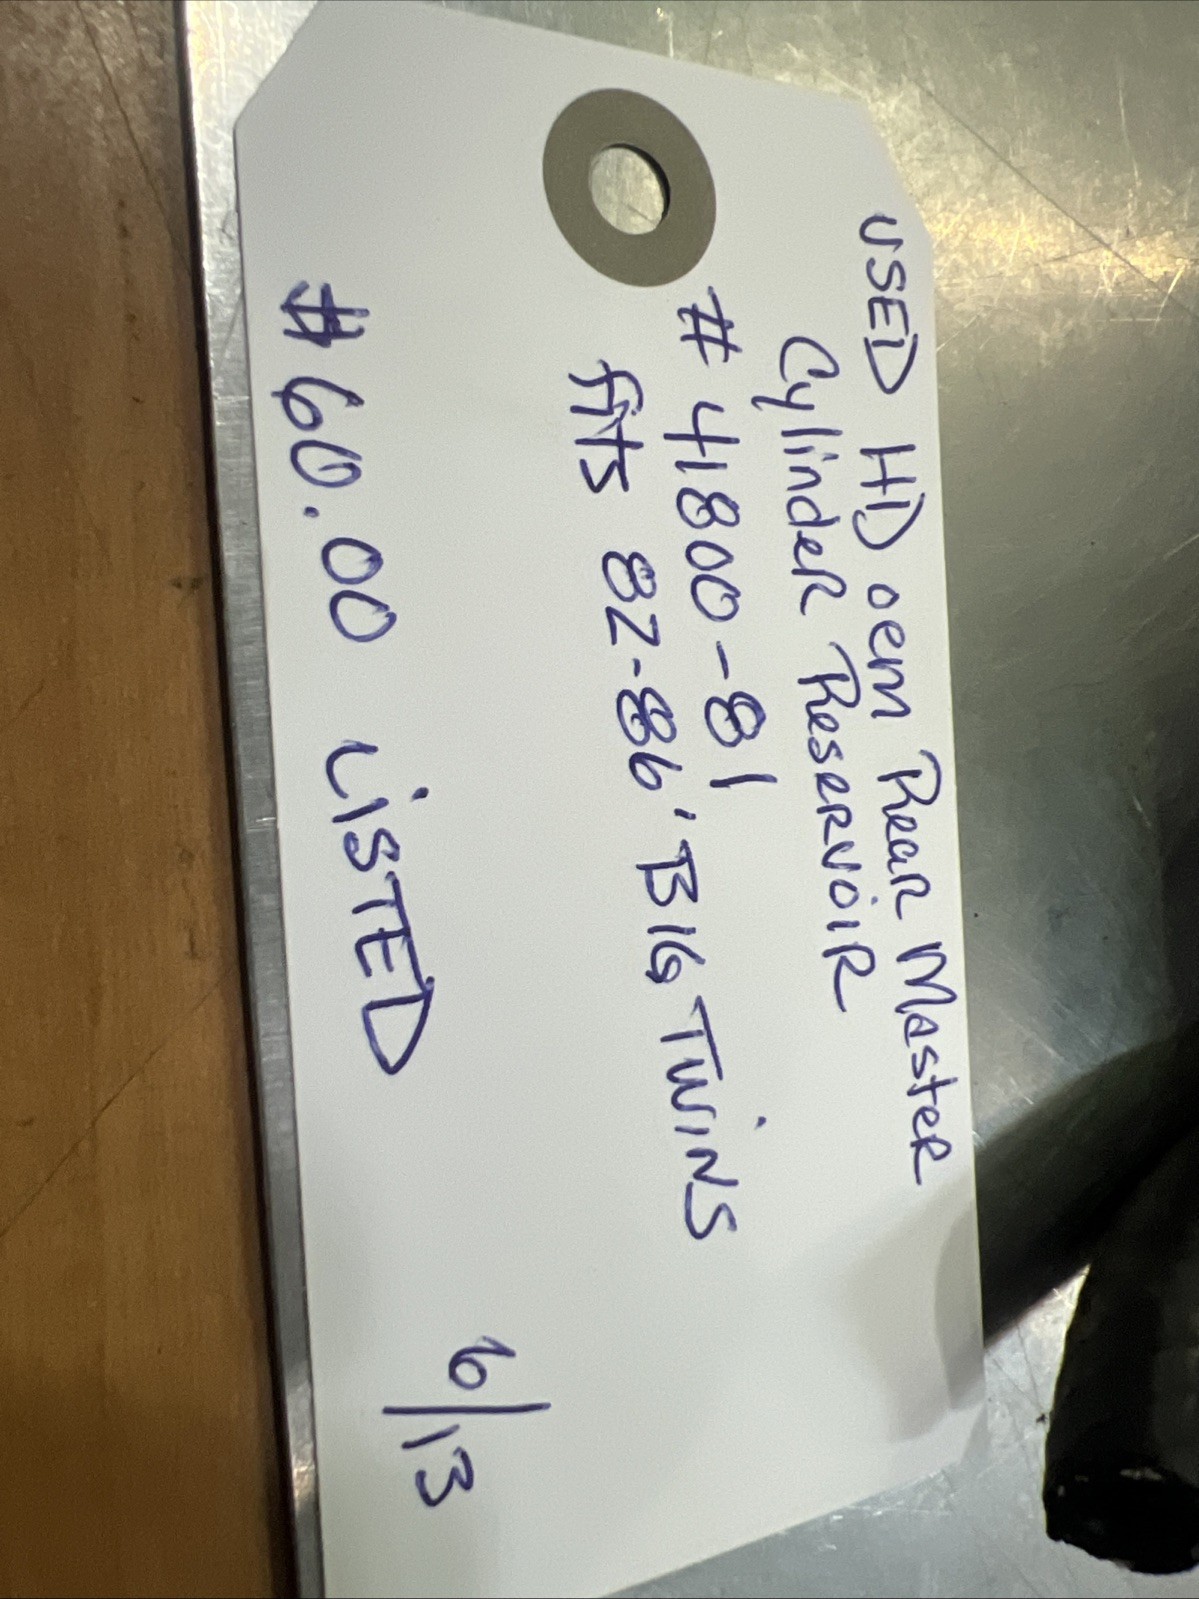 USED HD oem Rear Master
Cylinder Reservoir
# 41800-81
fits 82-86' Big Twins
#60.00 LiSTED
6/13